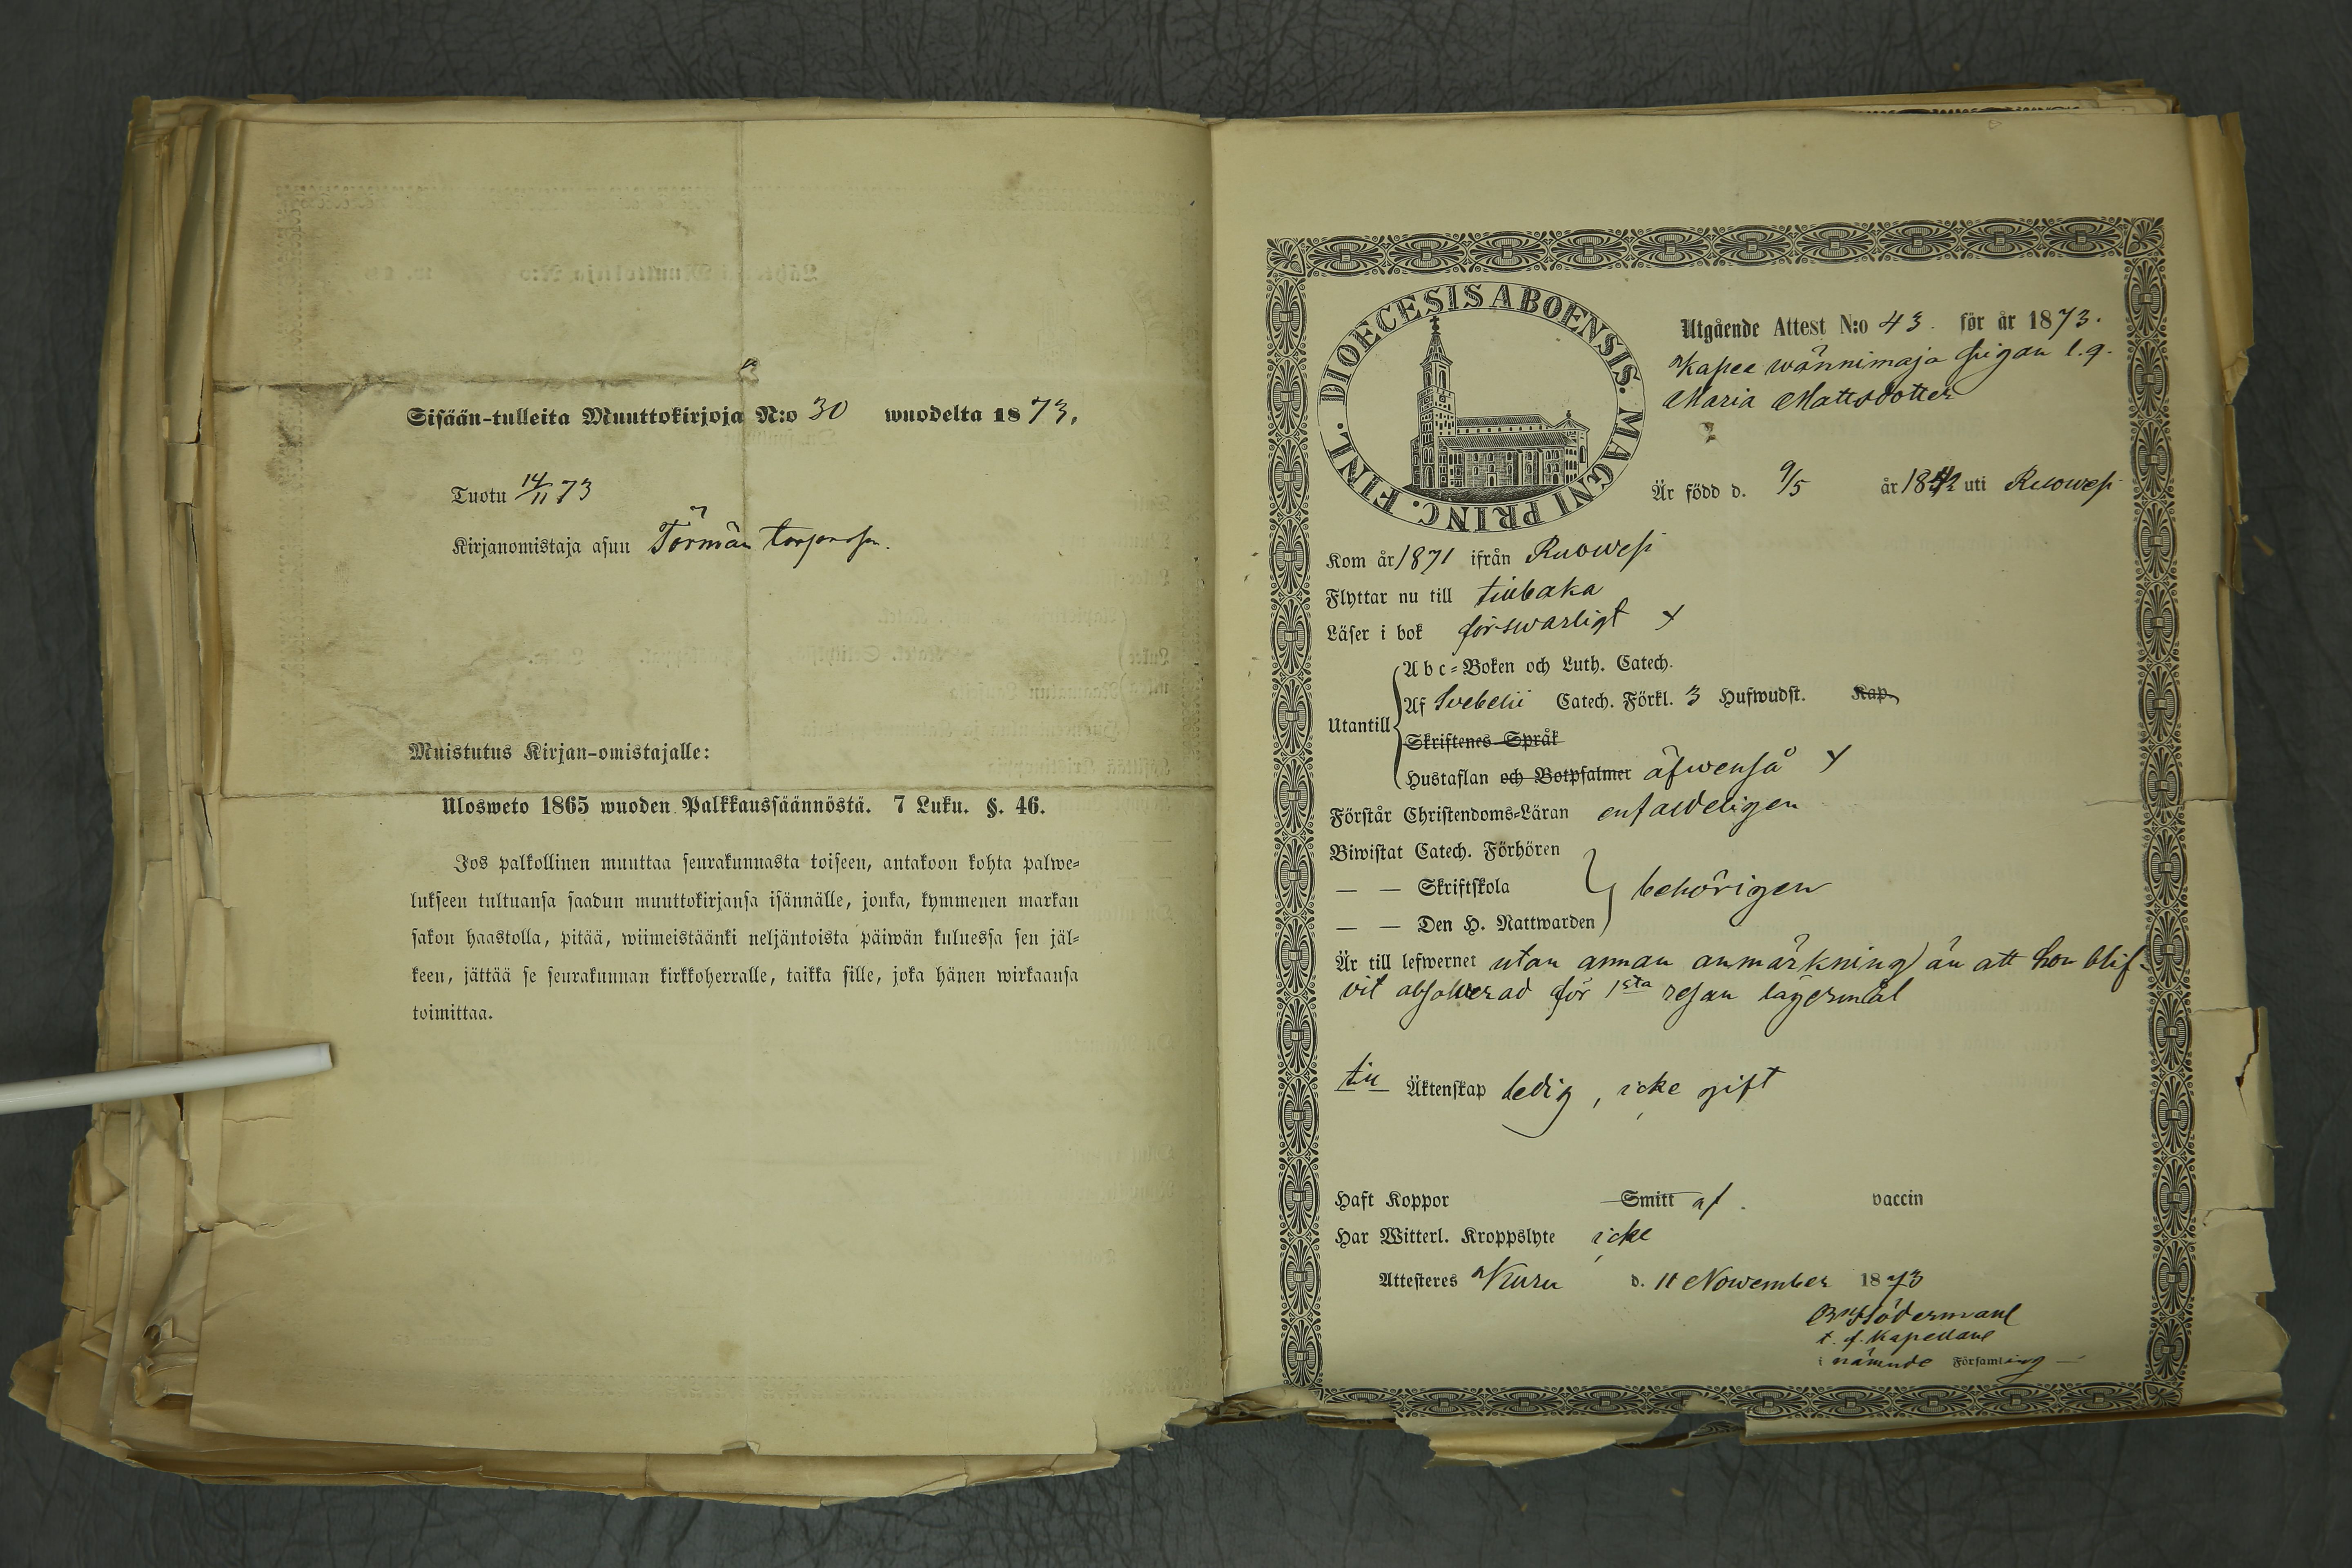 Sisään-tulleita Muuttokirjoja N:o 30 wuodelta 1873.
Tuotu 14/11 73
Kirjanomistaja asuu Törmän
Muistutus Kirjan-omistajalle:
Ulosweto 1865 wuoden Palkkaussäännöstä. 7 Luku. §. 46.
Jos palkollinen muuttaa seurakunnasta toiseen, antakoon kohta palwe-
lukseen tultuansa saadun muuttokirjansa isännälle, jonka, kymmenen markan
sakon haastolla, pitää, wiimeistäänki neljäntoista päiwän kuluessa sen jäl-
keen, jättää se seurakunnan kirkkoherralle, taikka sille, joka hänen wirkaansa
toimittaa.
DIOECESIS ABOENSIS. MAGNI PRINC. FINL.
Utgående Attest N:o 43. för år 1873.
pigan
Maria Mattsdotter
Är född d. 9/5 år 1842 uti Ruowesi
Kom år 1871 ifrån Ruowesi
Flyttar nu till tillbaka
Läser i bok förswarligt x
Abc-Boken och Luth. Catech.
Utantill Af Svebelii Catech. Förkl. 3 Hufwudst. Kap.
Skriftenes Språk
Hustaflan och Botpsalmer äfwenså x
Förstår Christendoms-Läran enfaldeligen
Biwistat Catech. Förhören
— — Skriftskola behörigen
— — Den H. Nattwarden
Är till lefwernet utan annan anmärkning än att hon blif-
vit absolverad för 1sta resan lägersmål
till Äktenskap ledig, icke gift
Haft Koppor Smitt af vaccin
Har Witterl. Kroppslyte icke
Attesteres Kuru d. 11 November 1873
Södermanl
t. f. Kapellan
i nämnde Församling